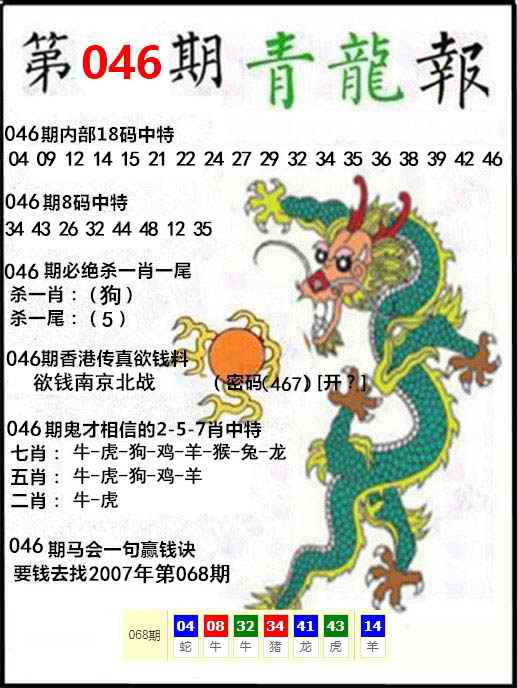 第046期青龍報
046期内部18码中特
04 09 12 14 15 21 22 24 27 29 32 34 35 36 38 39 42 46
046期8码中特
34 43 26 32 44 48 12 35
046 期必绝杀一肖一尾
杀一肖：（狗）
杀一尾：（5）
046期香港传真欲钱料
欲钱南京北战 （密码(467) [开？]
046期鬼才相信的2-5-7肖中特
七肖： 牛-虎-狗-鸡-羊-猴-兔-龙
五肖： 牛-虎-狗-鸡-羊
二肖： 牛-虎
046 期马会一句赢钱诀
要钱去找2007年第068期
068期 04 08 32 34 41 43 14
蛇 牛 牛 猪 龙 虎 羊